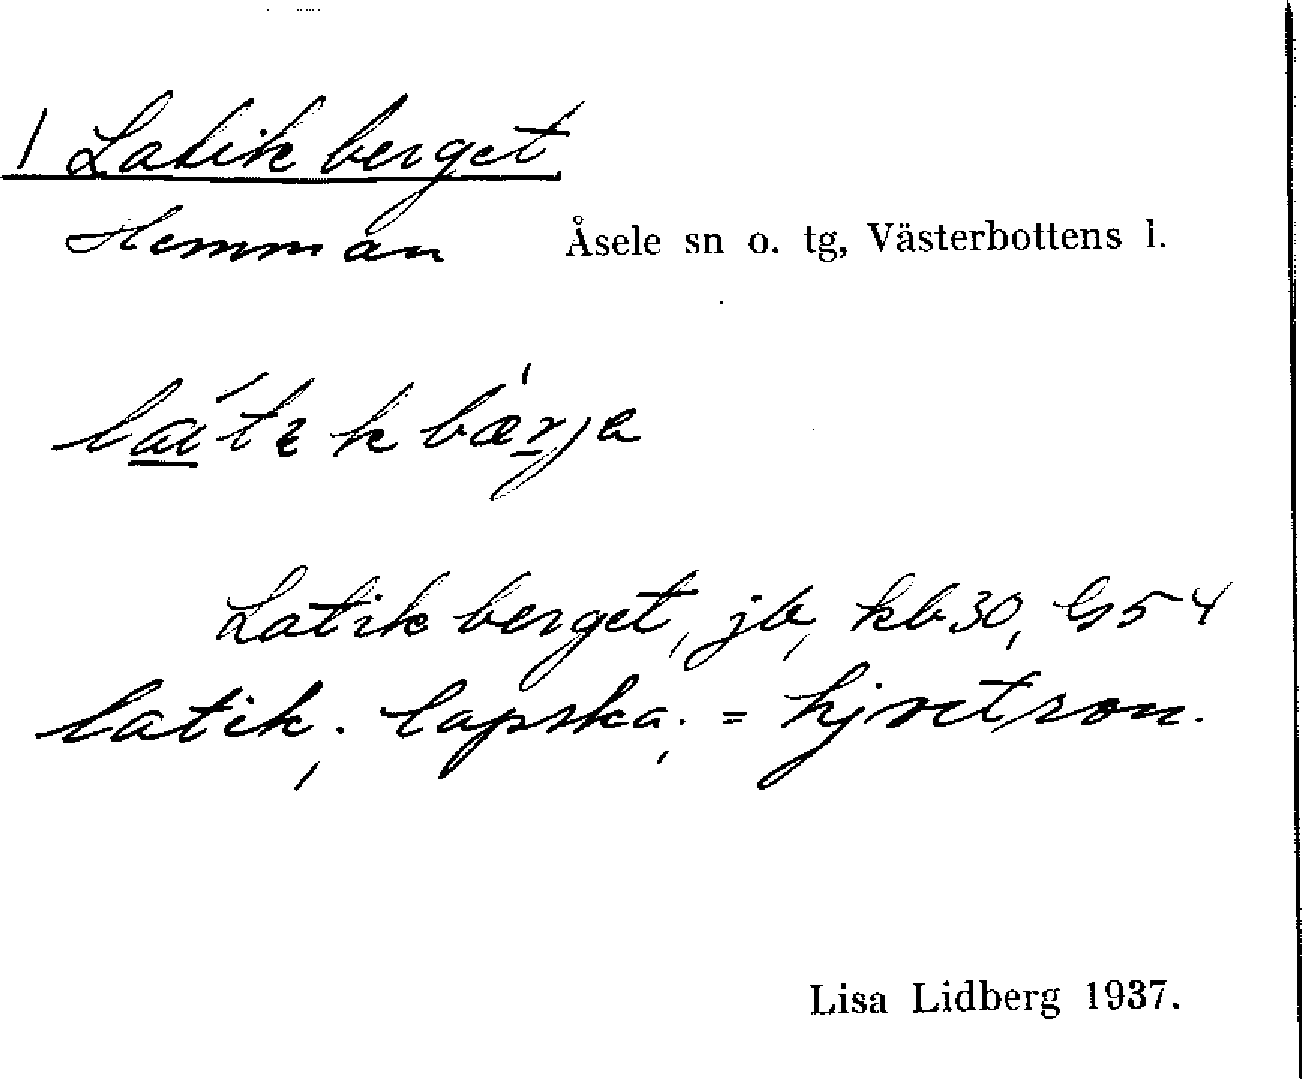 1 Latikberget
Hemman Åsele sn o. tg, Västerbottens l.
Latikberget, jb, kb 30, G54
latik, lapska, = hjortron.
Lisa Lidberg 1937.